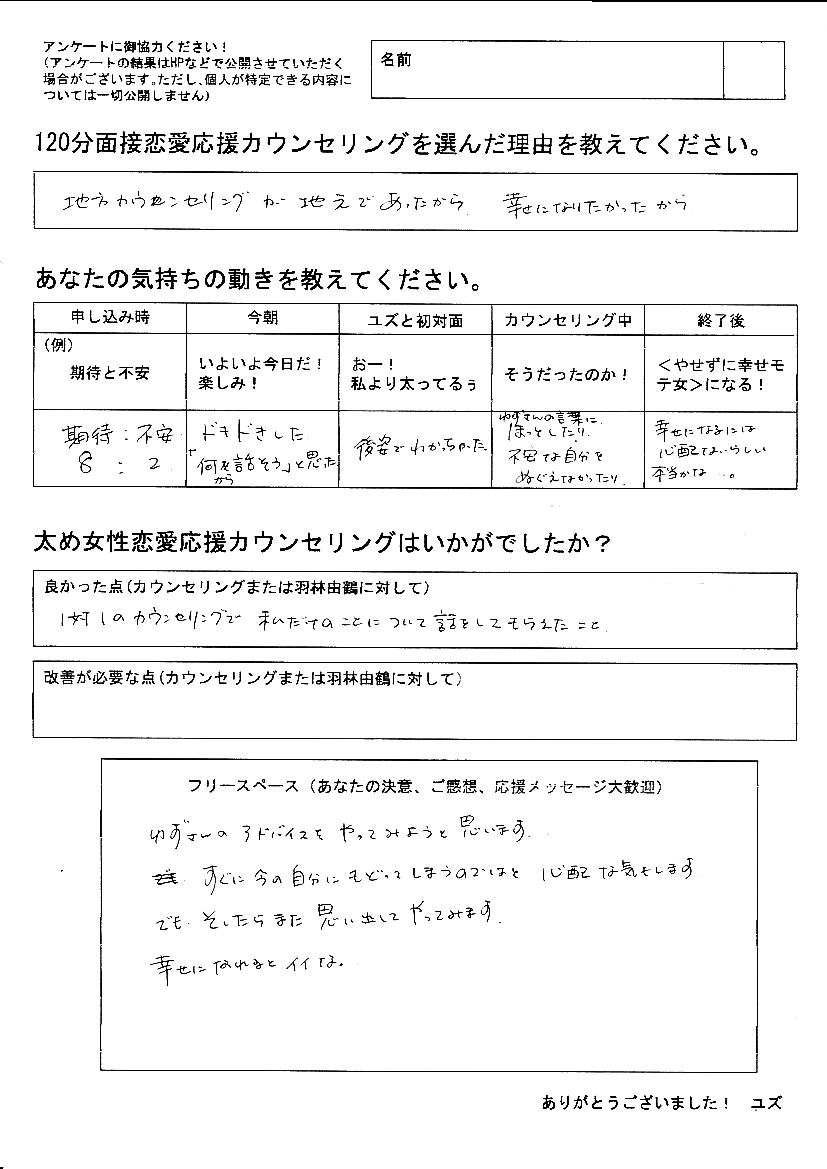 アンケートに御協力ください！
（アンケートの結果はHPなどで公開させていただく
場合がございます。ただし、個人が特定できる内容に
ついては一切公開しません）
名前
120分面接恋愛応援カウンセリングを選んだ理由を教えてください。
地方カウンセリングが地元であったから 幸せになりたかったから
あなたの気持ちの動きを教えてください。
申し込み時 今朝 ユズと初対面 カウンセリング中 終了後
（例）
期待と不安
いよいよ今日だ！
楽しみ！
おー！
私より太ってるぅ
そうだったのか！
＜やせずに幸せモ
テ女＞になる！
期待：不安
8 : 2
ドキドキした
「何を話そう」と思った
から
後姿でわかっちゃった
ゆずさんの言葉に、
ほっとしたり、
不安な自分を
ぬぐえなかったり
幸せになるには
心配ないらしい
本当かな…。
太め女性恋愛応援カウンセリングはいかがでしたか？
良かった点（カウンセリングまたは羽林由鶴に対して）
1対1のカウンセリングで 私だけのことについて話をしてもらえたこと
改善が必要な点（カウンセリングまたは羽林由鶴に対して）
フリースペース（あなたの決意、ご感想、応援メッセージ大歓迎）
ゆずさんのアドバイスをやってみようと思います。
すぐに今の自分にもどってしまうのではと心配な気もします
でも、そしたらまた思い出してやってみます。
幸せになれるとイイな。
ありがとうございました！ ユズ